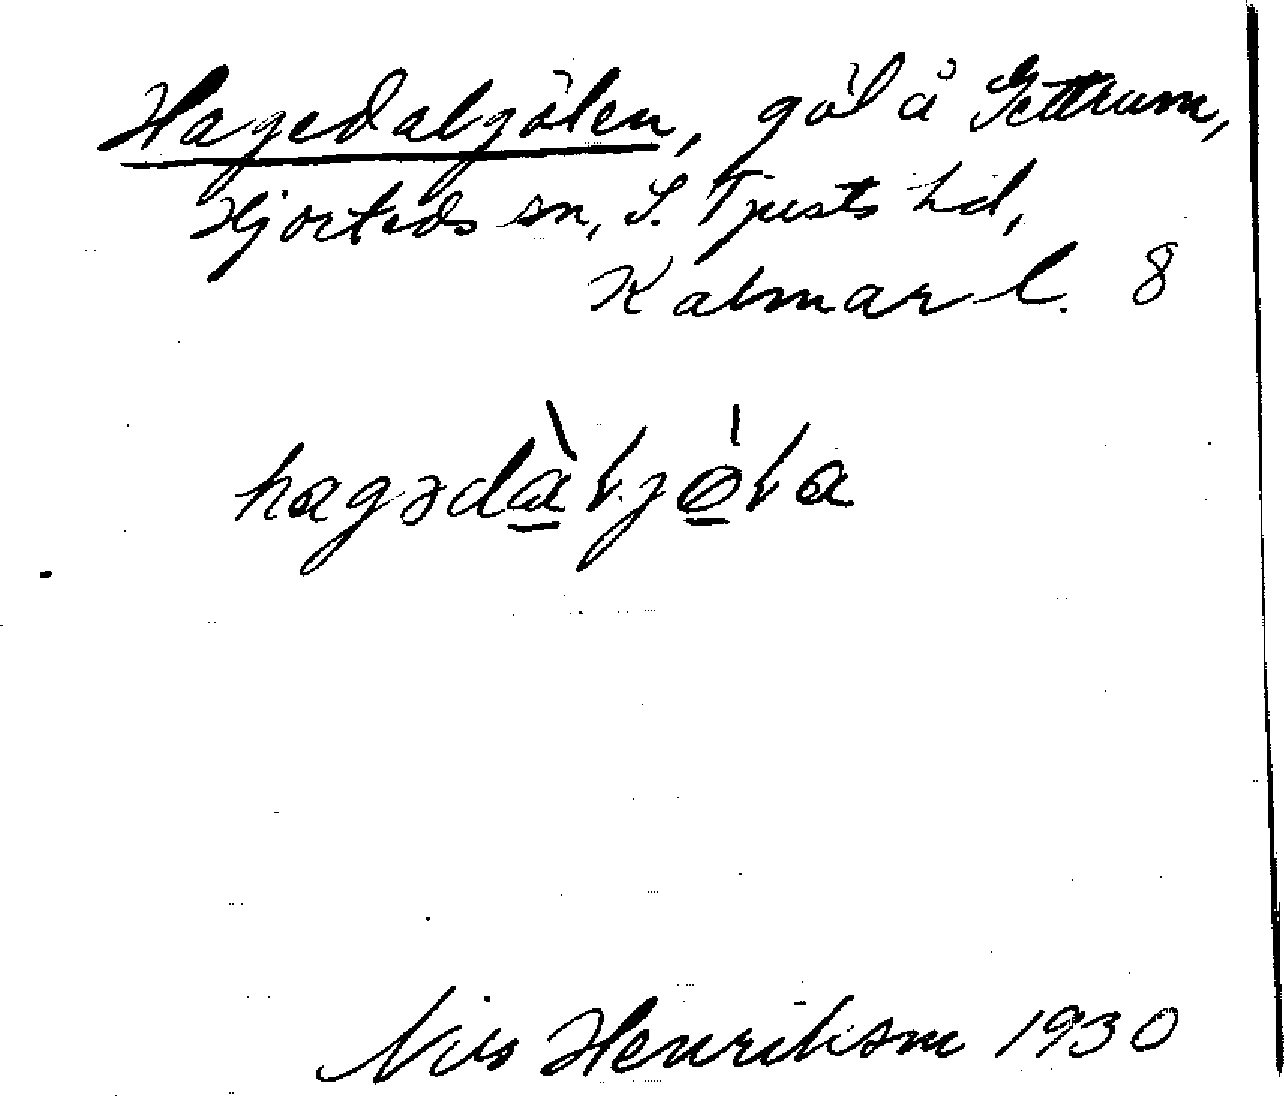 Hagedalgölen, göl å Gettrum,
Hjorteds sn, S. Tjusts hd,
Kalmar l. 8
hagədàljøla
Nils Henriksson 1930